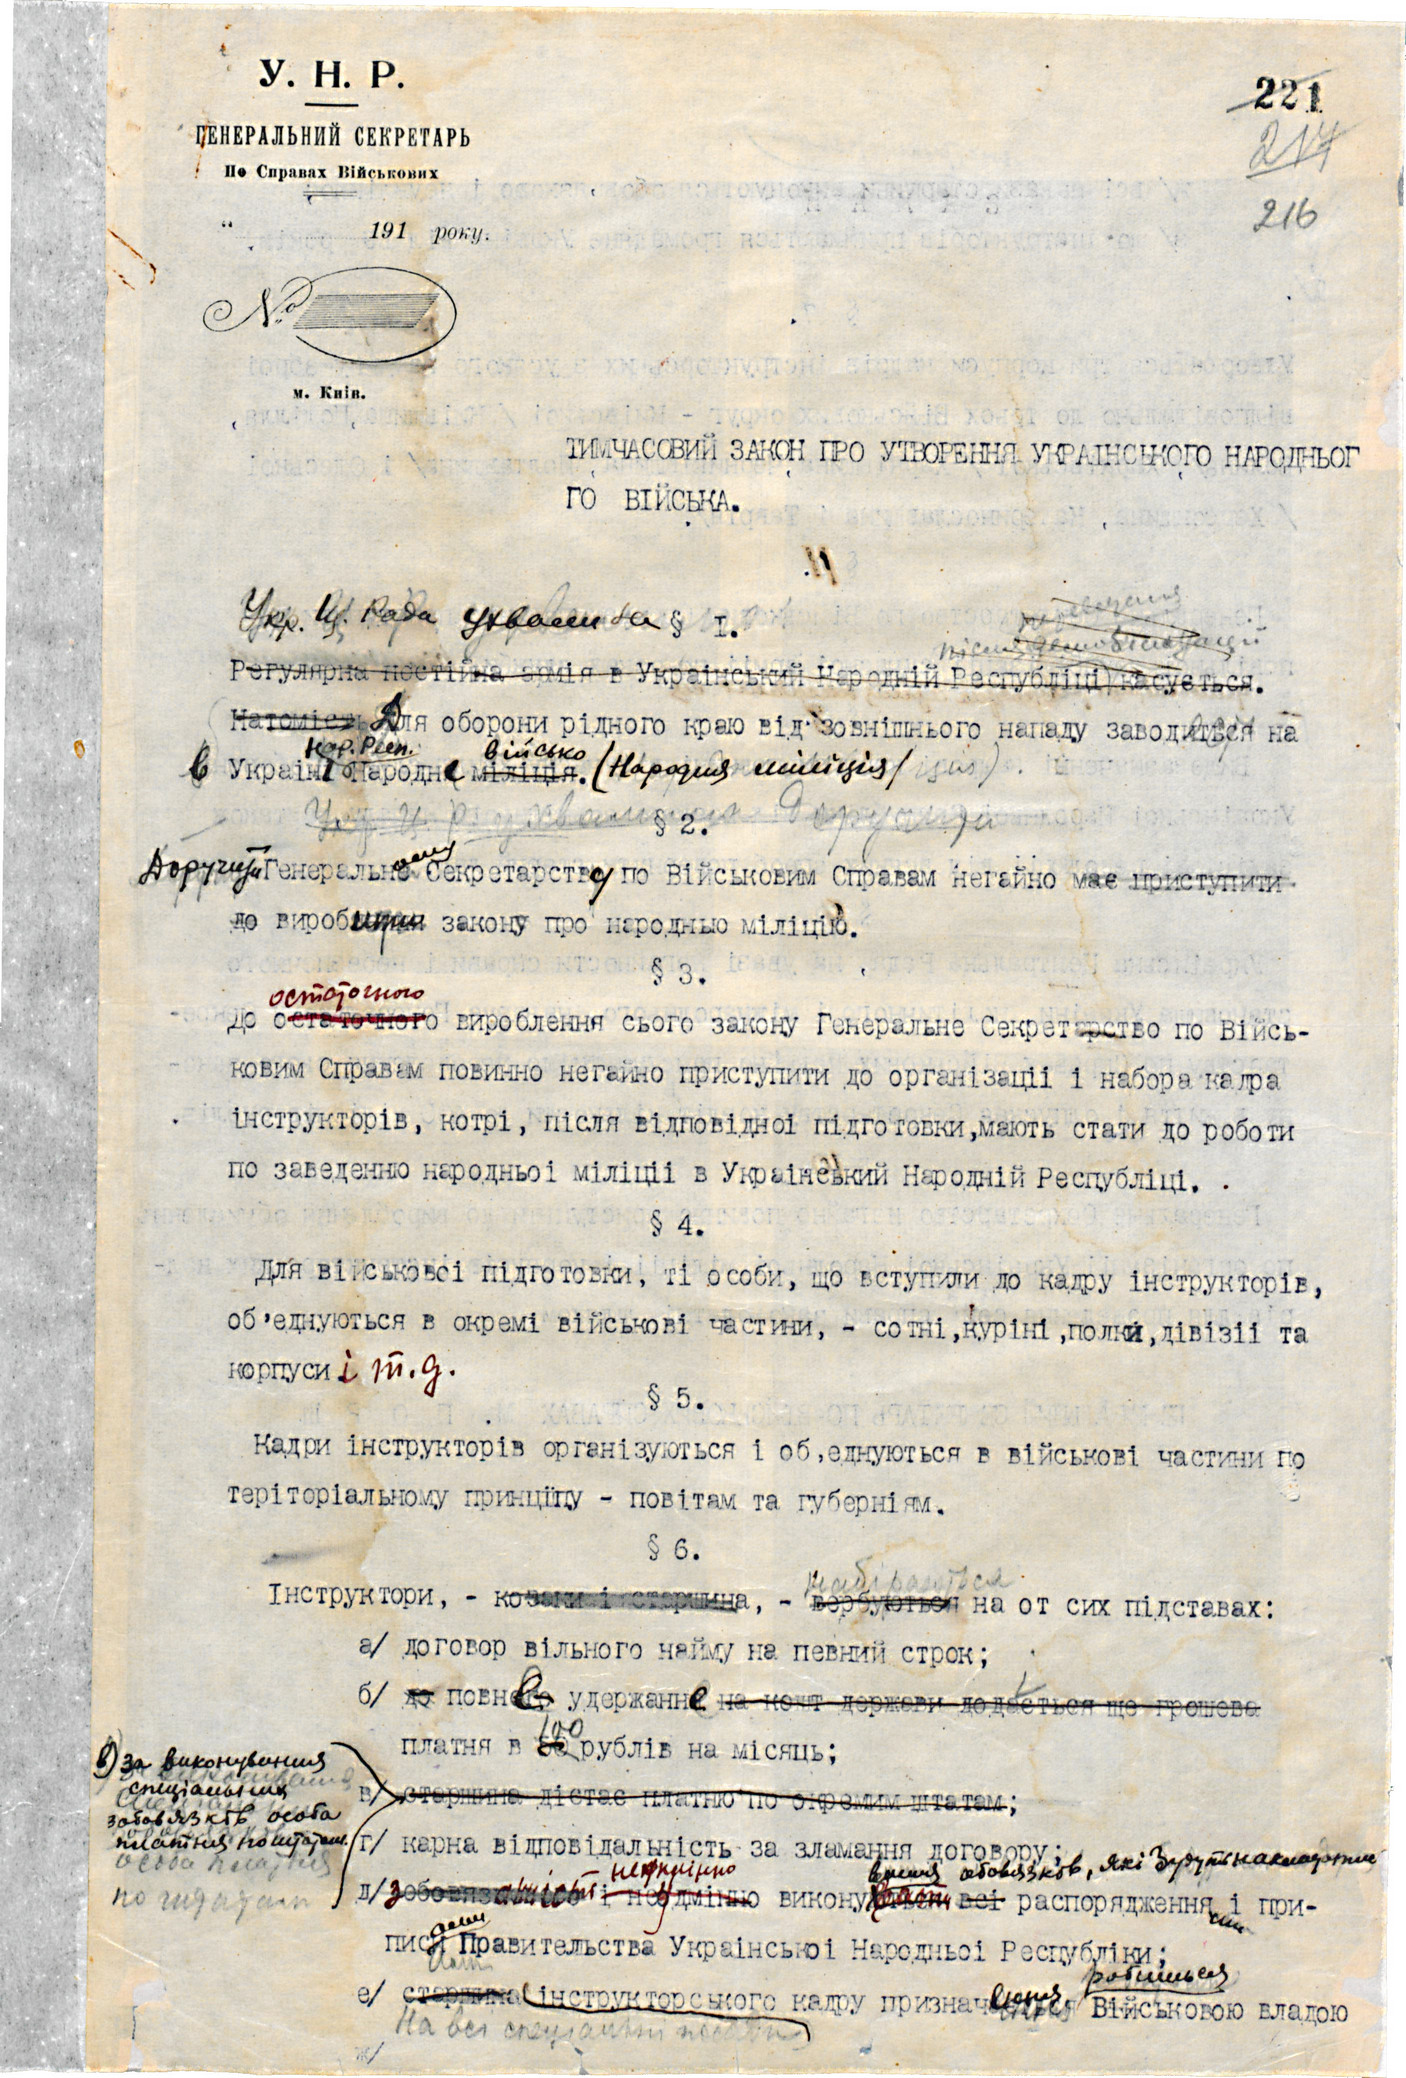 У. Н. Р.
ГЕНЕРАЛЬНИЙ СЕКРЕТАРЬ
По Справах Військових
„ 191 року.
№
м. Київ.
221
217
216
ТИМЧАСОВИЙ ЗАКОН ПРО УТВОРЕННЯ УКРАІНСЬКОГО НАРОДНЬОГ
ГО ВІЙСЬКА.
Укр. Ц. Рада ухвалила § I.
після демобілізації
Регулярна постійна армія в Украінський Народній Республіці касується.
Натомість Для оборони рідного краю від зовнішнього нападу заводиться на
Нар. Респ. військо
в Украіні Народне міліція. (Народня міліція)
§ 2.
Доручити Генеральному Секретарству по Військовим Справам негайно має приступити
до вироб закону про народньо міліцію.
§ 3.
остаточного
До остаточного вироблення сього закону Генеральне Секретарство по Війсь-
ковим Справам повинно негайно приступити до організаціі і набора кадра
інструкторів, котрі, після відповідноі підготовки,мають стати до роботи
по заведенню народньоі міліціі в Украінський Народній Республіці.
§ 4.
Для військовоі підготовки, ті особи, що вступили до кадру інструкторів,
об'еднуються в окремі військові частини, - сотні,куріні,полки,дівізіі та
корпуси і т.д.
§ 5.
Кадри інструкторів організуються і об,еднуються в військові частини по
теріторіальному принціпу - повітам та губерніям.
§ 6.
набіраються
Інструктори, - козаки і старшина, - вербуються на от сих підставах:
а/ договор вільного найму на певний строк;
б/ до повне удержанне на кошт держави додається ще грошева
100
платня в рублів на місяць;
в) за виконування
спеціальних
забовязків особа
платня по штатам
в/ старшина дістає платню по окремим штатам;
г/ карна відповідальність за зламання договору;
неодмінно вення обовязків, які будуть накладатися
д/ зобовязаність і неодмінно виконують всі распорядження і при-
писи Правительства Украінськоі Народньоі Республіки;
робиться
е/ старшина інструкторського кадру призначення Військовою владою
На всі спеціальні посади
ж/